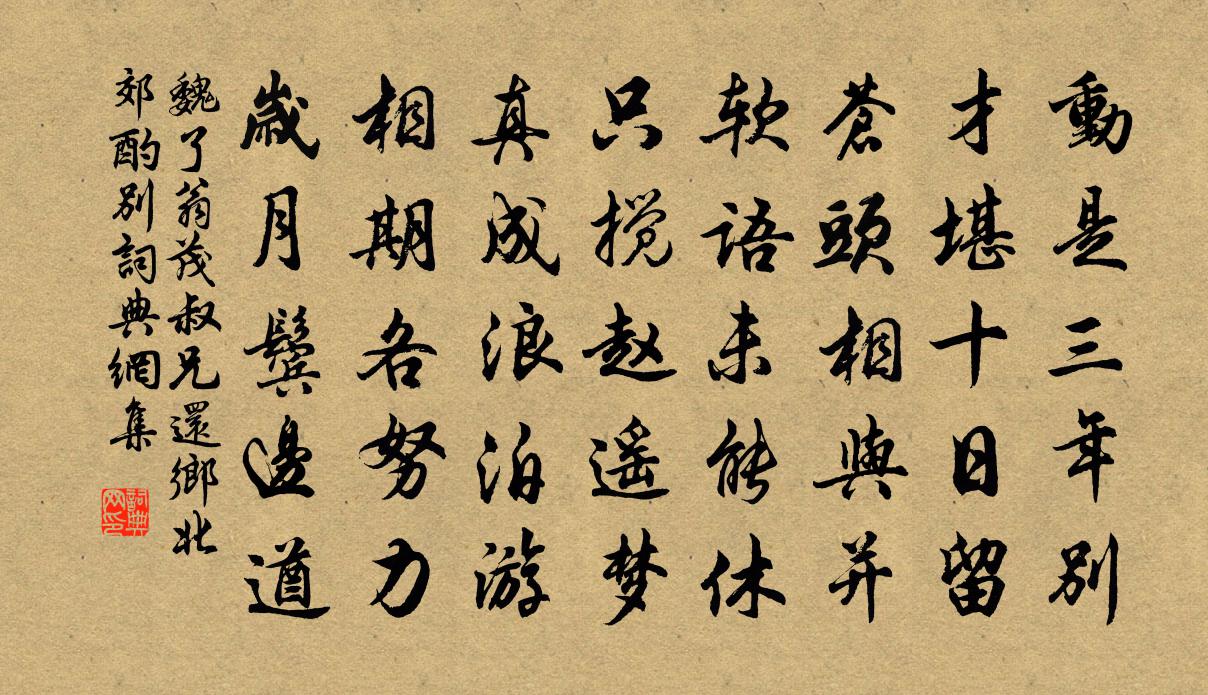 動是三年別
才堪十日留
蒼頭相與并
软語未能休
只搅赵遥梦
真成浪泊游
相期各努力
歲月鬓邊遒
魏了翁茂叔兄還鄉北
郊酌別詞典網集
詞典
网印